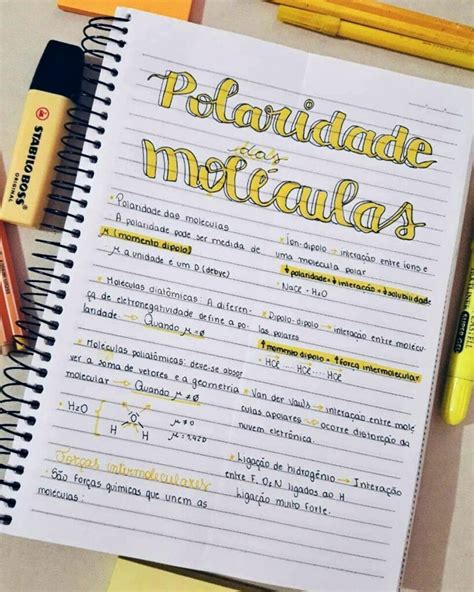 Polaridade
das
moléculas
STABILO BOSS
ORIGINAL
• Polaridade das moléculas
A polaridade pode ser medida de
μ (momento dipolo)
μ a unidade é um D (debye)
• Moléculas diatômicas: A diferen-
ça de eletronegatividade define a po-
laridade → Quando μ ≠ 0
• Moléculas poliatômicas: deve-se obser
ver a soma de vetores e a geometria
molecular → Quando μ ≠ 0
• H2O
O
H H
μ ≠ 0
Forças intermoleculares
• São forças químicas que unem as
moléculas:
• Íon-dipolo → interação entre íons e
uma molécula polar
↑ polaridade ↑ interação ↑ solubilidade
NaCl + H2O
• Dipolo-dipolo → interação entre molécu-
las polares
↑ momento dipolo = ↑ força intermolecular
• HCl .... HCl .... HCl
• Van der Vaals → interação entre molé
culas apolares → ocorre distorção da
nuvem eletrônica.
• Ligação de hidrogênio → Interação
entre F, O e N ligados ao H
Ligação muito forte.